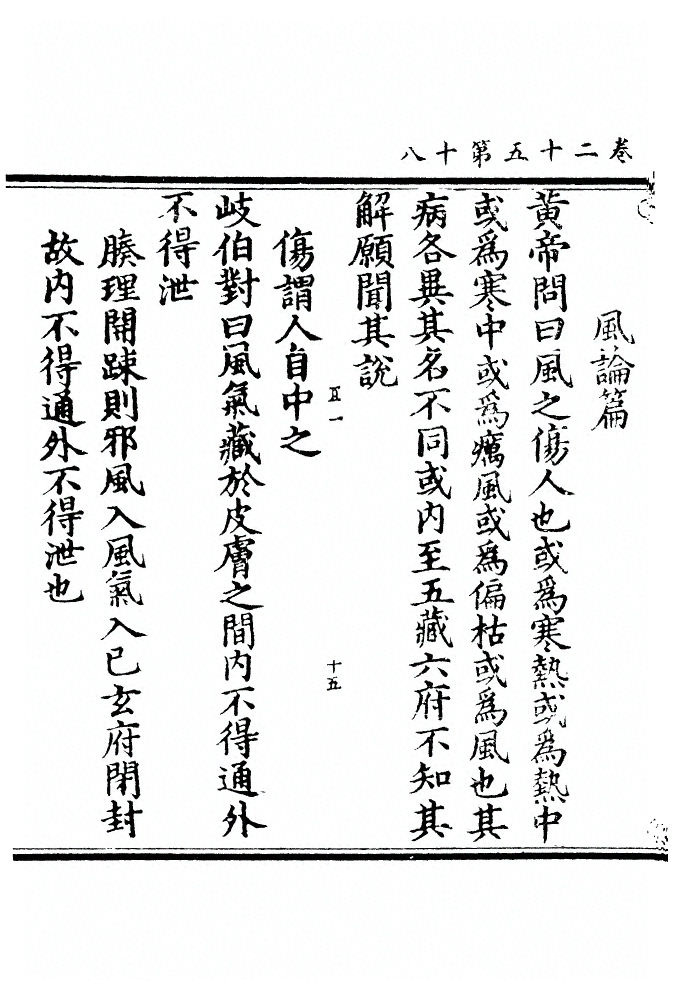 卷二十五第十八
風論篇
黃帝問曰風之傷人也或爲寒熱或爲熱中
或爲寒中或爲癘風或爲偏枯或爲風也其
病各異其名不同或內至五藏六府不知其
解願聞其說
五一
十五
傷謂人自中之
岐伯對曰風氣藏於皮膚之間內不得通外
不得泄
腠理開踈則邪風入風氣入已玄府閉封
故內不得通外不得泄也